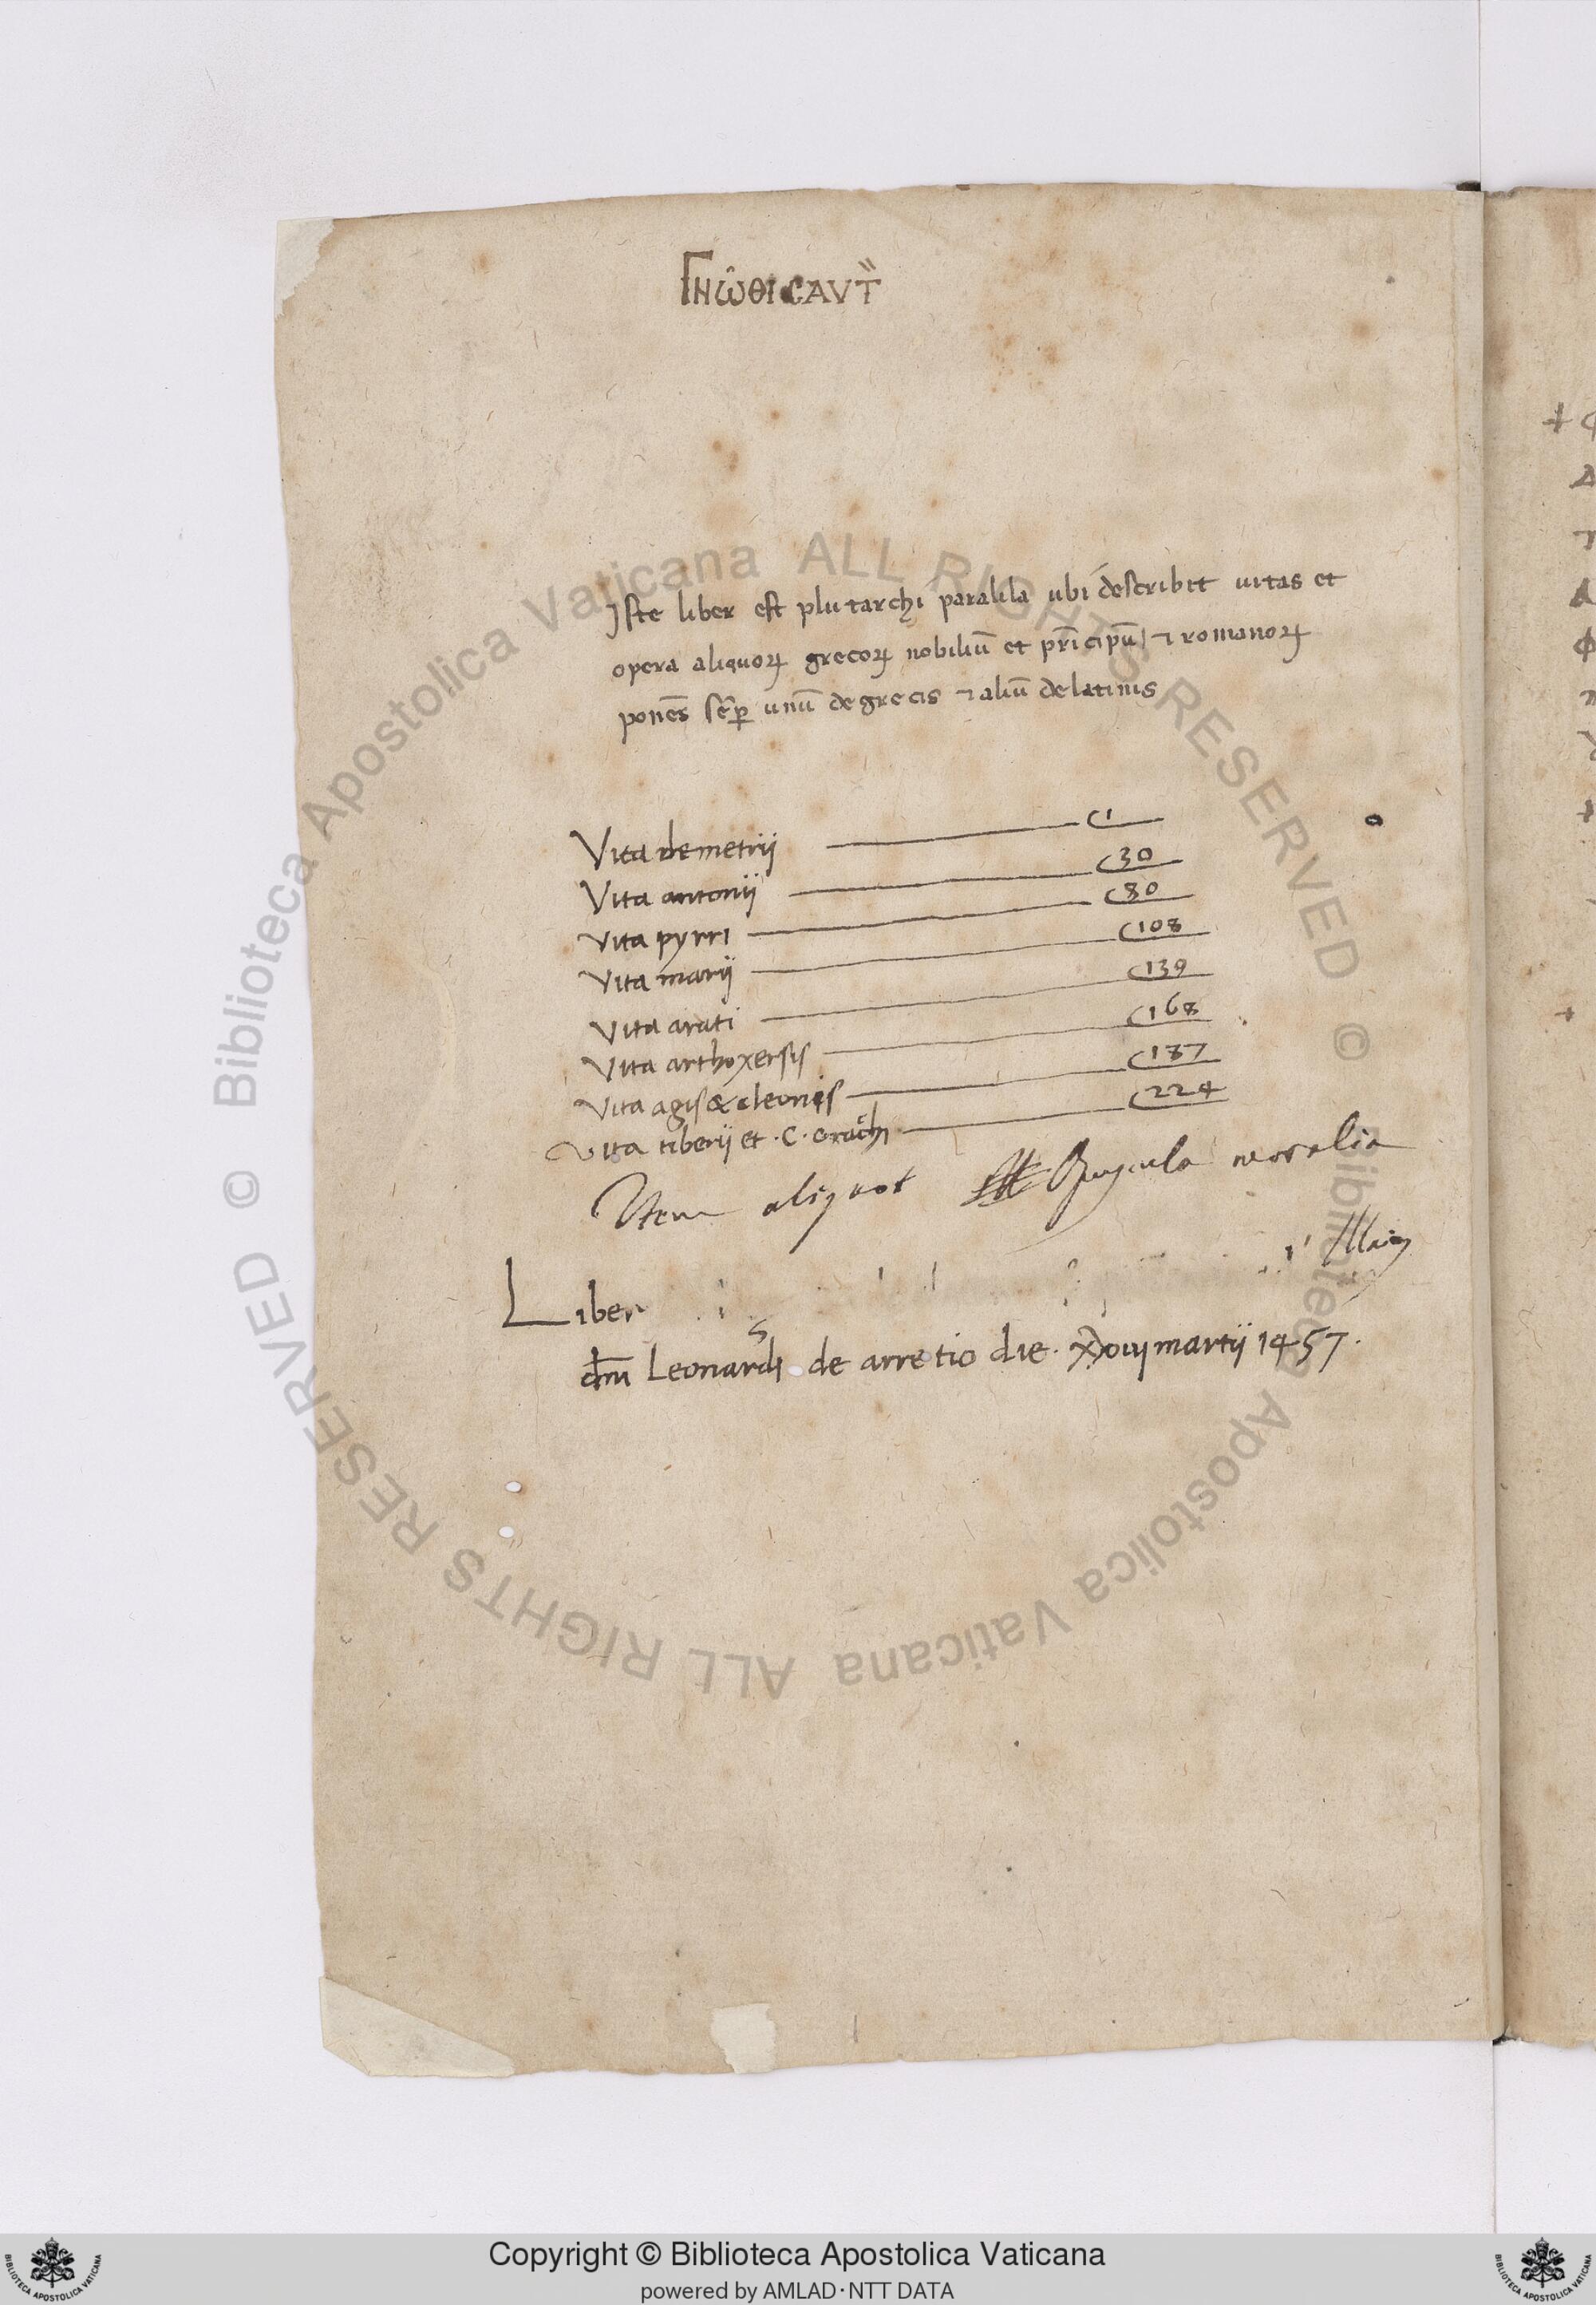 ΓΝῶθι ϹΑΥΤ̏
Iste liber est plutarchi paralila ubi describit uitas et
opera aliquoꝝ grecoꝝ nobiliū et pri̅cipū ⁊ romanoꝝ
ponēs sēꝑ unū de grecis ⁊ aliū de latinis
Vita demetrij C 1
Vita antonij C 30
Vita pyrri C 80
Vita marij C 108
Vita arati C 139
Vita arthoxersis C 168
Vita agis & cleonis C 187
Vita tiberij et .C. Grachi C 224
Item aliquot Opuscula moralia
Liber
dm̅ Leonardi de arretio die martij 1457.
© Biblioteca Apostolica Vaticana ALL RIGHTS RESERVED © Biblioteca Apostolica Vaticana ALL RIGHTS RESERVED
Copyright © Biblioteca Apostolica Vaticana
powered by AMLAD·NTT DATA
BIBLIOTECA APOSTOLICA VATICANA
BIBLIOTECA APOSTOLICA VATICANA